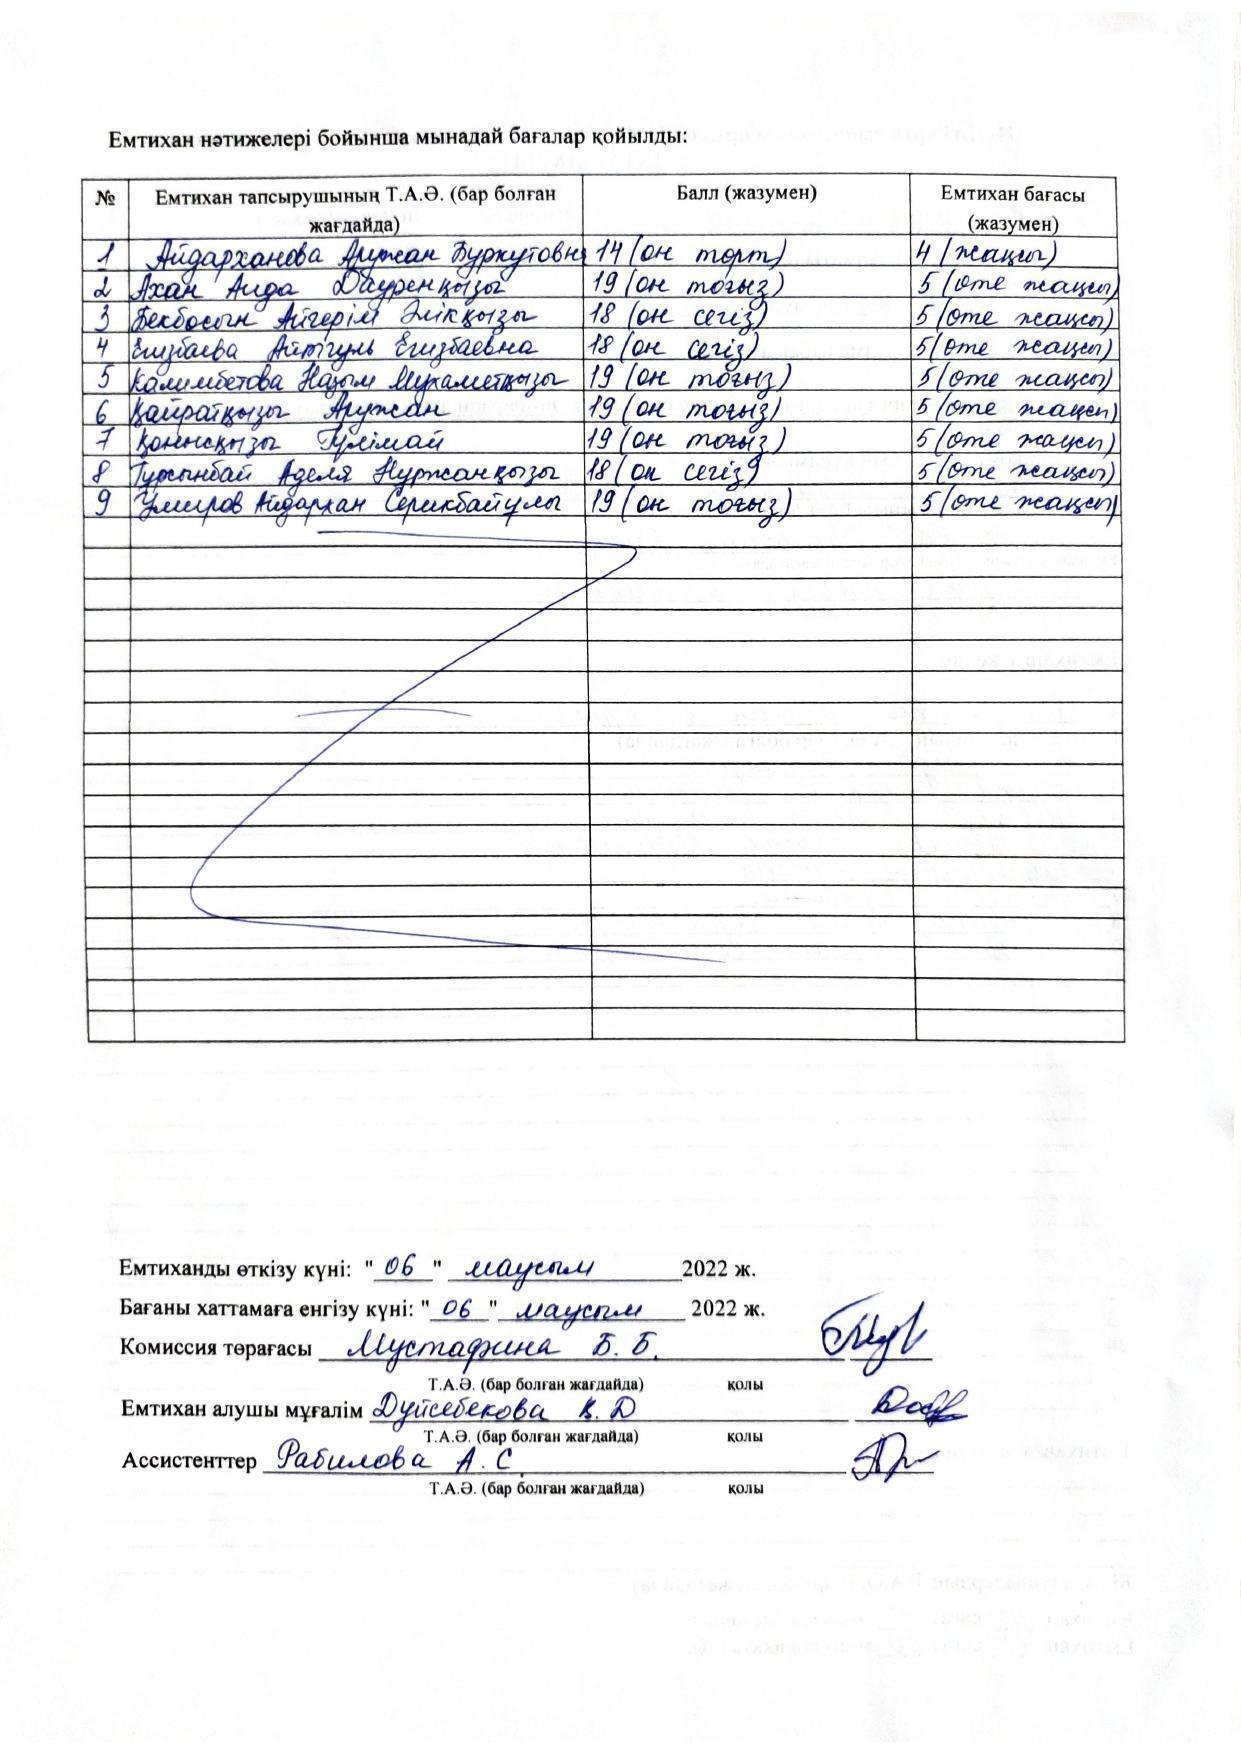 Емтихан нәтижелері бойынша мынадай бағалар қойылды:
№ Емтихан тапсырушының Т.А.Ә. (бар болған жағдайда) Балл (жазумен) Емтихан бағасы (жазумен)
1 Айдарханова Аружан Буркутовна 14 (он төрт) 4 (жақсы)
2 Ахан Аида Дәуренқызы 19 (он тоғыз) 5 (өте жақсы)
3 Бекбосын Айгерім Әлікқызы 18 (он сегіз) 5 (өте жақсы)
4 Егизбаева Айтгуль Егизбаевна 18 (он сегіз) 5 (өте жақсы)
5 Калимбетова Назым Мухаметқызы 19 (он тоғыз) 5 (өте жақсы)
6 Қайратқызы Аружан 19 (он тоғыз) 5 (өте жақсы)
7 Қонысқызы Гүлімай 19 (он тоғыз) 5 (өте жақсы)
8 Тұрсынбай Аделя Нуржанқызы 18 (он сегіз) 5 (өте жақсы)
9 Умиров Айдархан Серикбайұлы 19 (он тоғыз) 5 (өте жақсы)
Емтиханды өткізу күні: "06" маусым 2022 ж.
Бағаны хаттамаға енгізу күні: "06" маусым 2022 ж.
Комиссия төрағасы Мустафина Б. Б.
Т.А.Ә. (бар болған жағдайда) қолы
Емтихан алушы мұғалім Дүйсебекова Қ. Д
Т.А.Ә. (бар болған жағдайда) қолы
Ассистенттер Рабилова А. С.
Т.А.Ә. (бар болған жағдайда) қолы